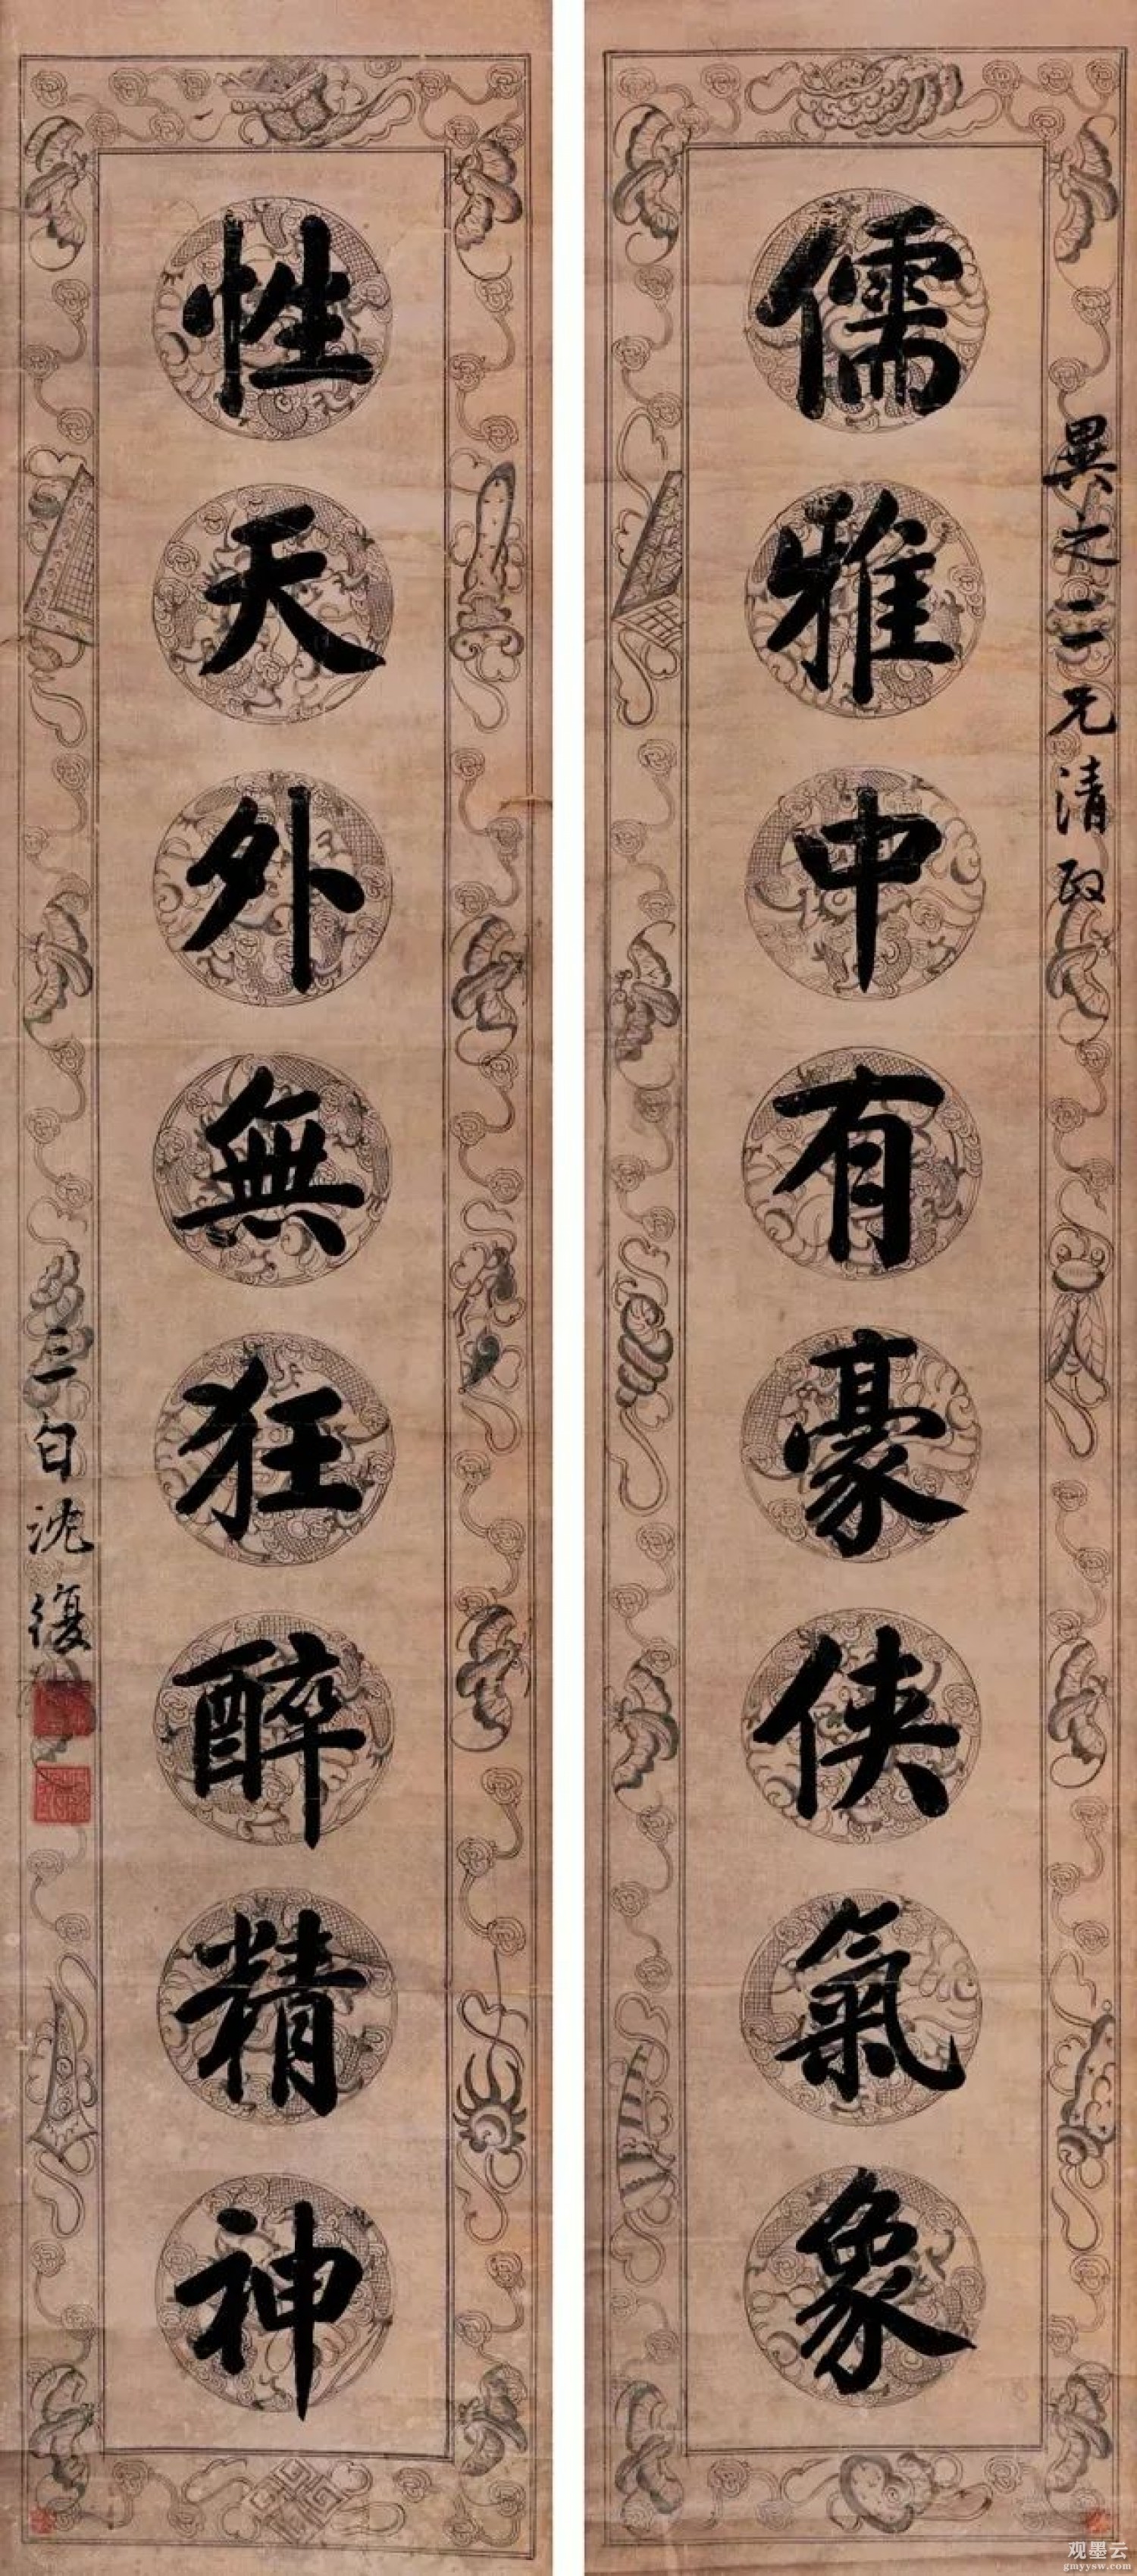 異之二兄清政
儒雅中有豪俠氣象
性天外無狂醉精神
三白沈復
观墨云
gmyysw.com